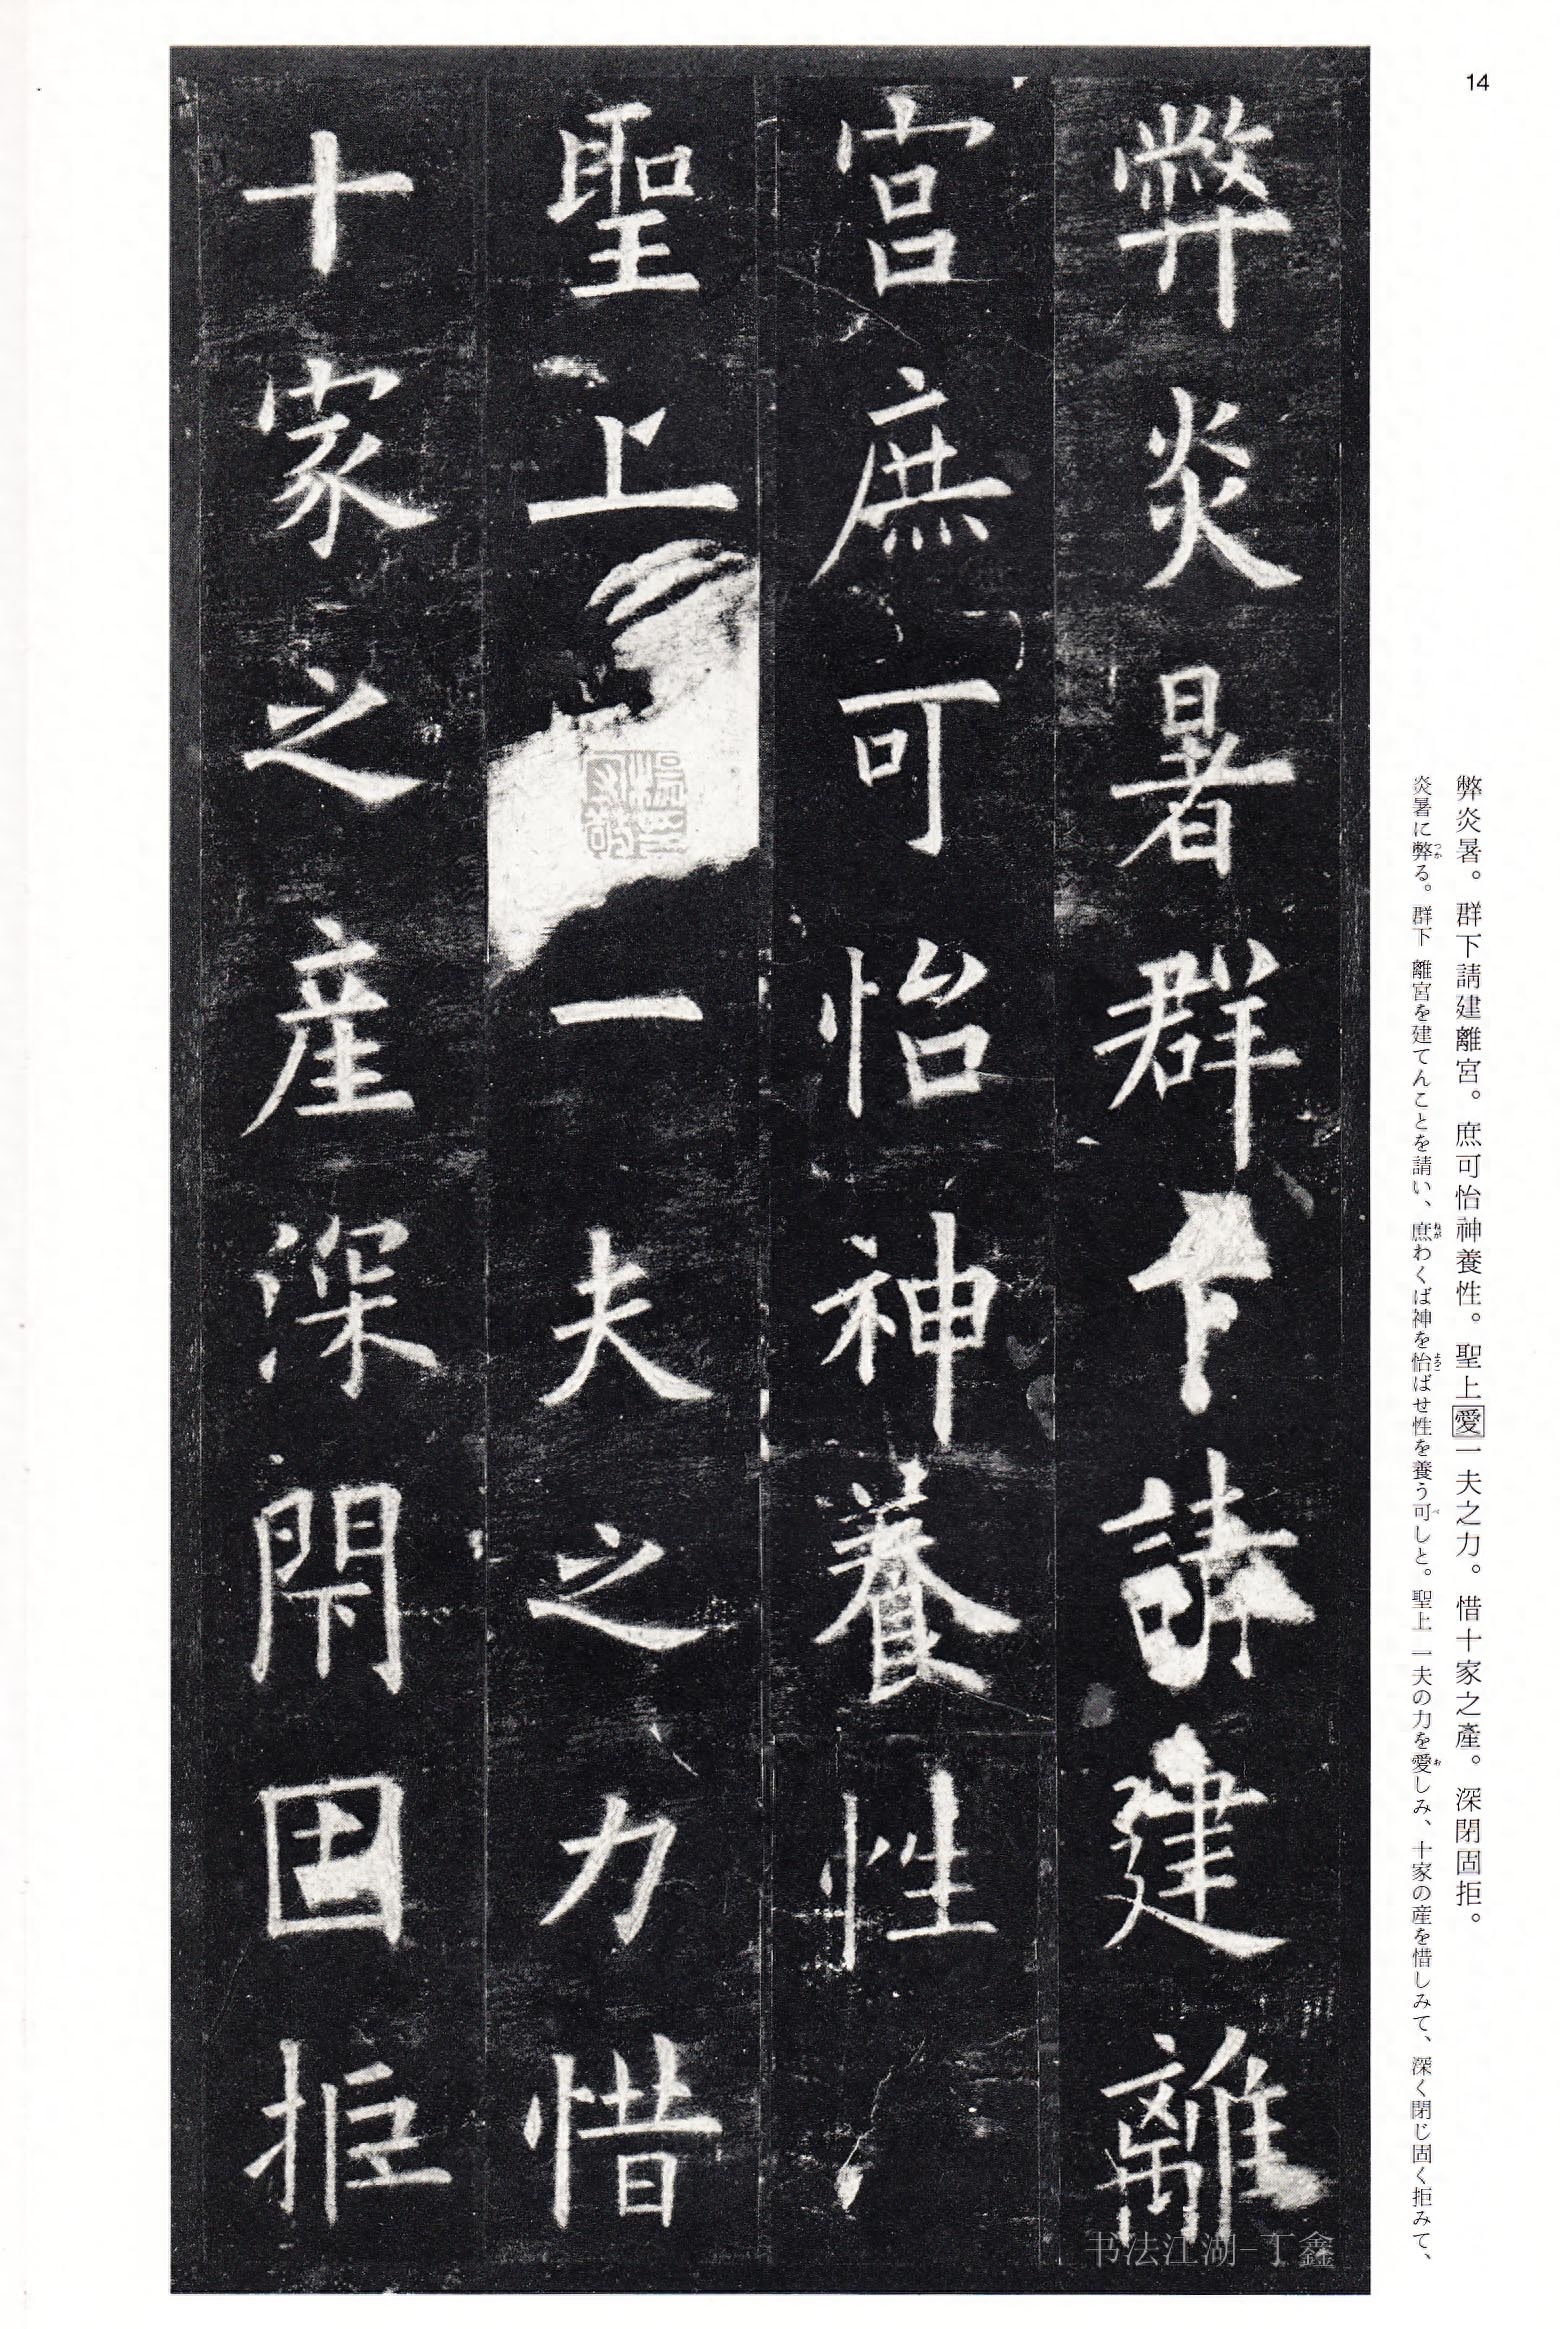 14
弊炎暑。群下請建離宮。庶可怡神養性。聖上愛一夫之力。惜十家之產。深閉固拒。
炎暑に弊る。群下 離宮を建てんことを請い、庶わくば神を怡ばせ性を養う可しと。聖上 一夫の力を愛しみ、十家の産を惜しみて、深く閉じ固く拒みて、
弊炎暑群下請建離
宮庶可怡神養性
聖上一夫之力惜
十家之產深閇固拒
书法江湖-丁鑫